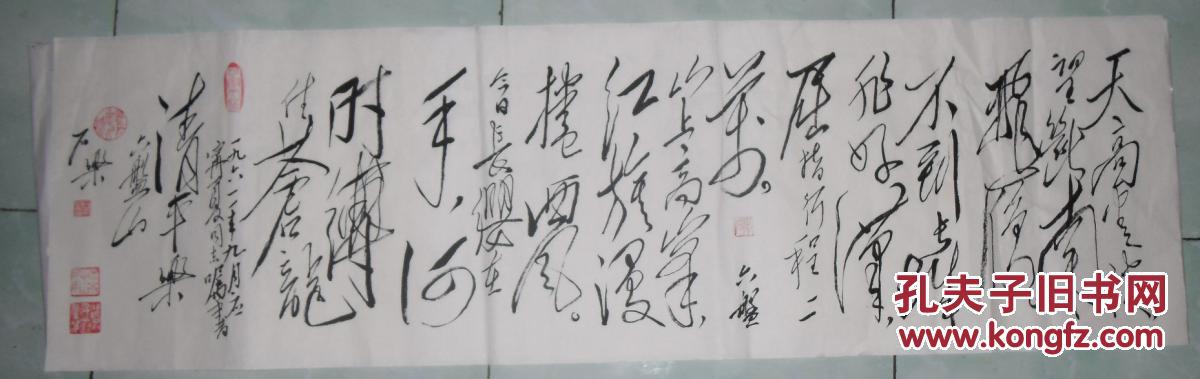 天高云淡，
望断南
飞雁。
不到长城
非好汉，
屈指行程二
万。
六盘
山上高峰，
红旗漫
捲西风。
今日长缨在
手，何
时缚
住苍龙
一九六一年九月应
宁夏同志嘱书
清平乐
六盘山
石樂
孔夫子旧书网
www.kongfz.com